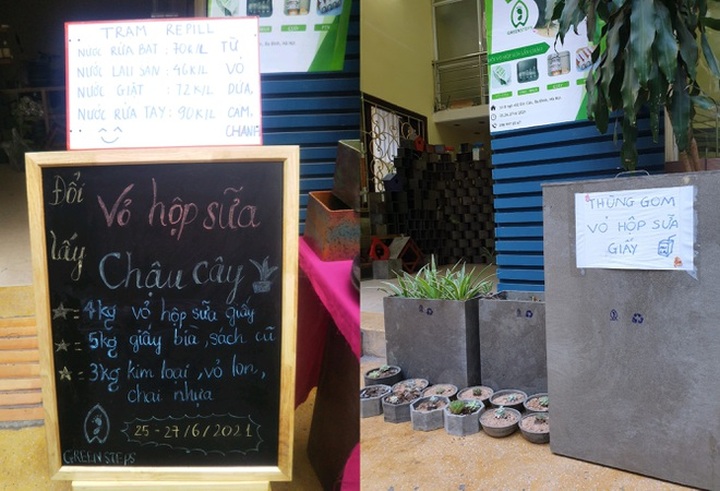 TRẠM REFILL
NƯỚC RỬA BÁT : 70K/L
NƯỚC LAU SÀN : 46K/L
NƯỚC GIẶT : 72K/L
NƯỚC RỬA TAY : 90K/L
TỪ
VỎ
DỨA,
CAM,
CHANH
Đổi
Vỏ hộp sữa
lấy
Chậu cây
= 4kg vỏ hộp sữa giấy
= 5kg giấy bìa, sách cũ
= 3kg kim loại, vỏ lon,
chai nhựa
25-27/6/2021
GREEN STEPS
GREENSTEPS
THÙNG GOM
VỎ HỘP SỮA
GIẤY